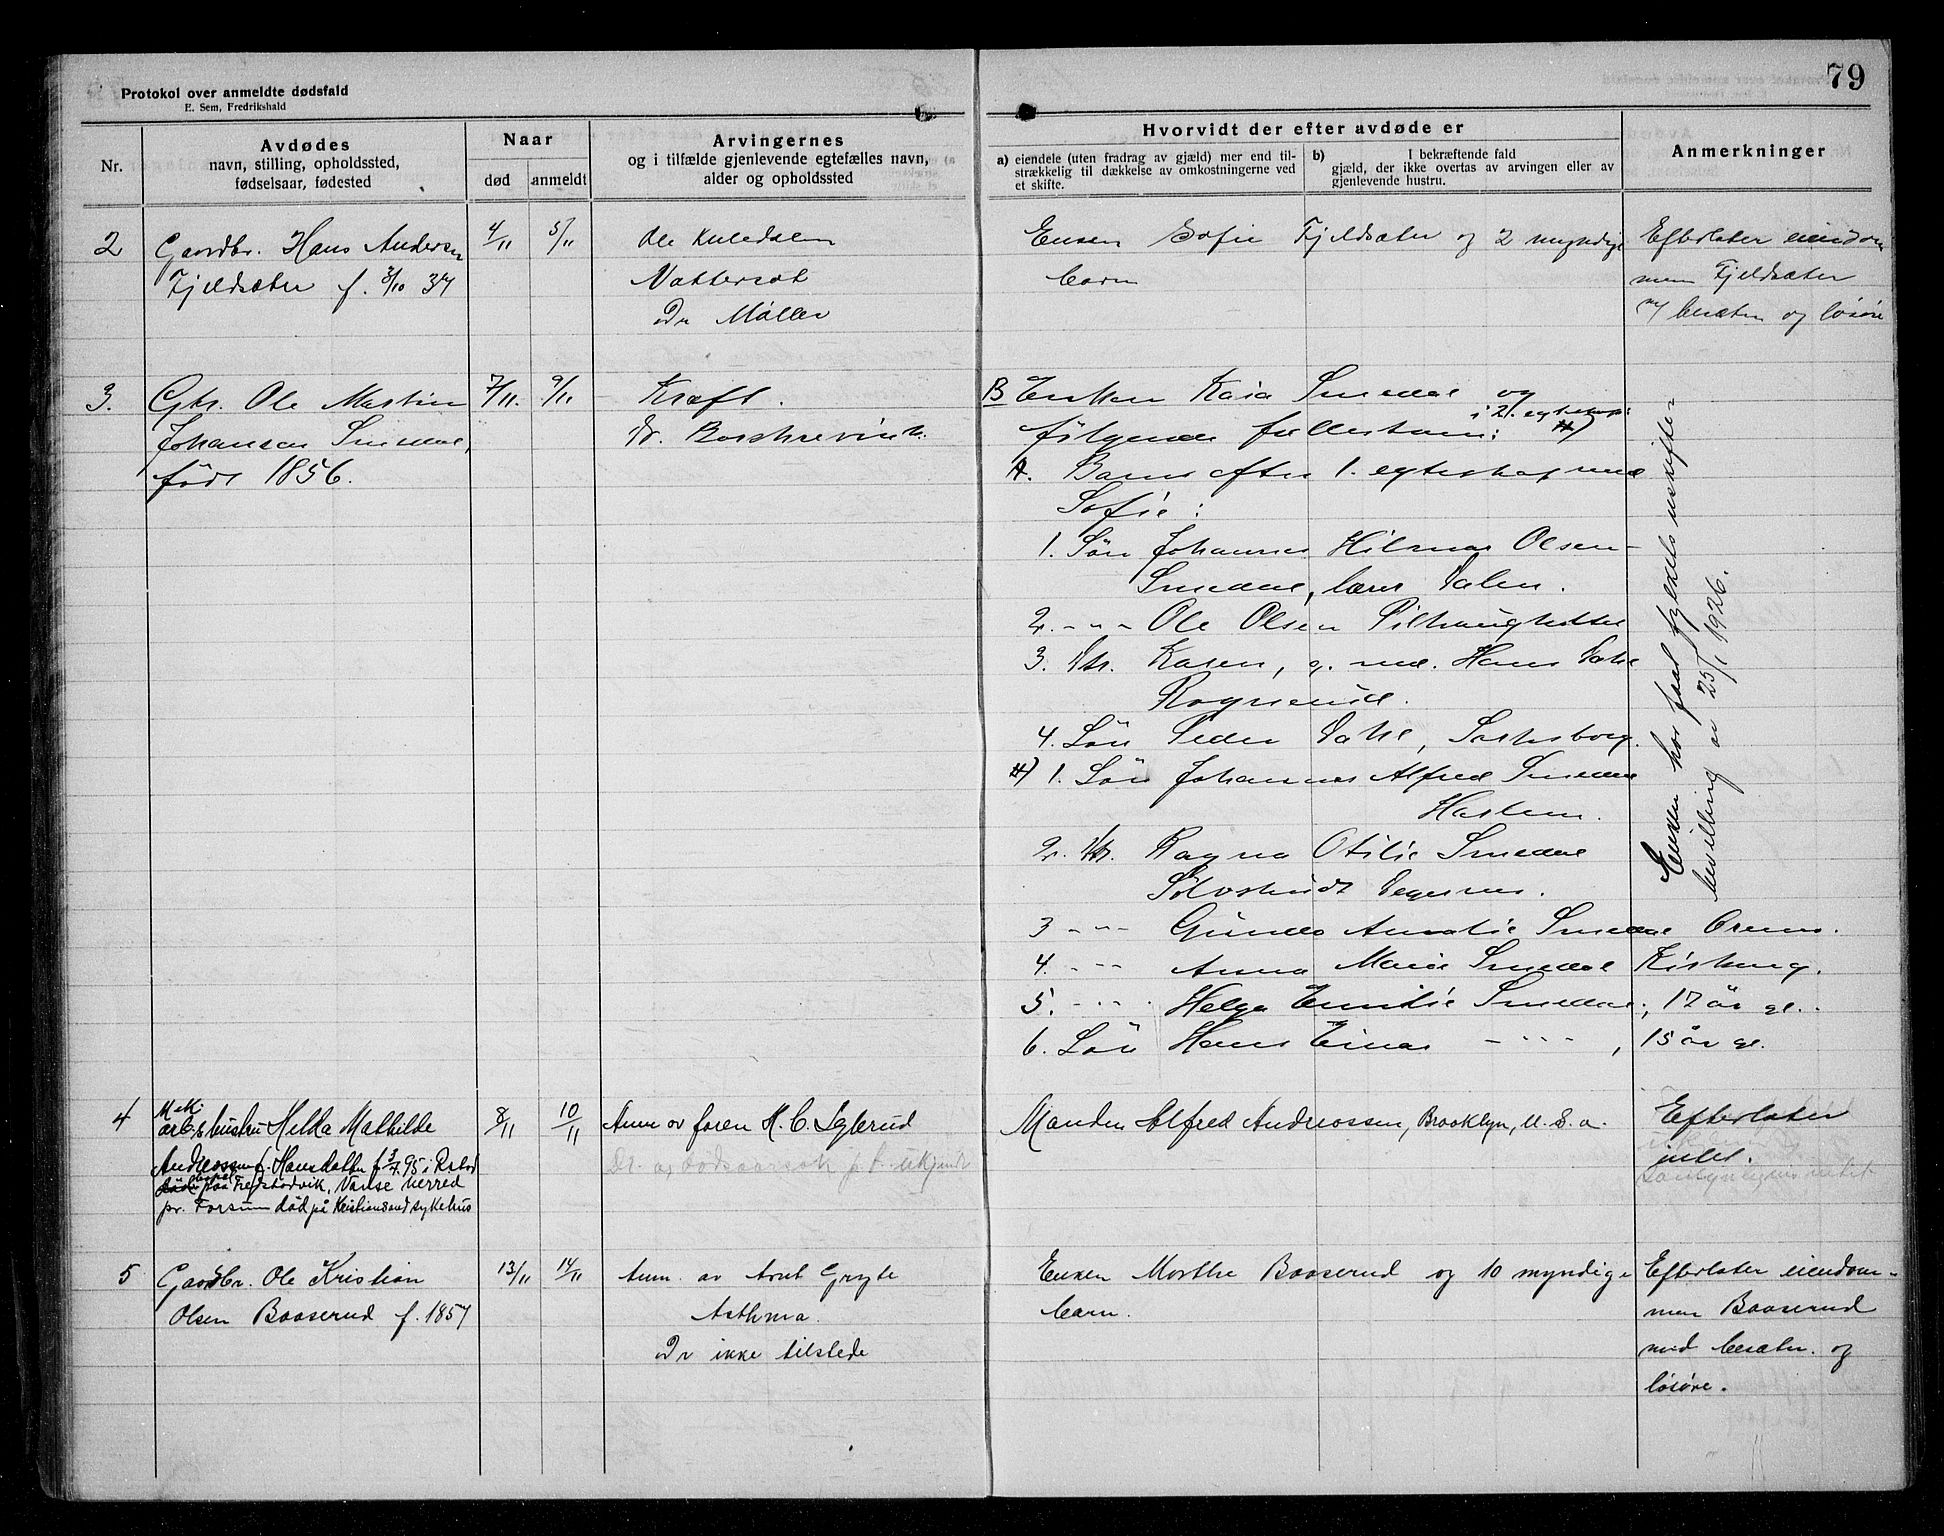 79
Protokol over anmeldte dødsfald
E. Sem, Fredrikshald
Nr.
Avdødes
navn, stilling, opholdssted,
fødselsaar, fødested
Naar
død
anmeldt
Arvingernes
og i tilfælde gjenlevende egtefælles navn,
alder og opholdssted
Hvorvidt der efter avdøde er
a) eiendele (uten fradrag av gjæld) mer end til-
strækkelig til dækkelse av omkostningerne ved
et skifte.
b) I bekræftende fald
gjæld, der ikke overtas av arvingen eller av
gjenlevende hustru.
Anmerkninger
2
Gaardbr. Hans Andersen
Fjeldsæter f. 3/10 37
4/11
5/11
Ole Kuledalen
Nattersot
Dr Møller
Enken Sofie Fjeldsæter og 2 myndige
barn
Efterlater eiendom
men Fjeldsæter
m/ besætn og løsøre
3.
Gbr. Ole Martin
Johansen Smedal,
født 1856.
7/11.
9/11
Kræft.
Dr. Borchrevink.
B Enken Kaia Smedal og
i 2. egteskap:
følgende fællesbarn: #)
A. Barn efter 1. egteskap med
Sofie:
1. Søn Johannes Hilmar Olsen
Smedal, Dalen.
2. - " - Ole Olsen Pilhaughytten
3. Dtr. Karen, g. med. Hans Dahl
Rognerud.
4. Søn Peder Dahl, Sarpsborg.
#) 1. Søn Johannes Alfred Smedal
Haslem.
2. Dtr. Ragna Otilie Smedal
Degernes.
3 - " - Gunda Amalie Smedal Oremo.
4. - " - Anna Marie Smedal Kirkeng.
5. - " - Helga Emilie Smedal, 17 år gl.
6. Søn Hans Einar - " - , 15 år gl.
Enken har faat fylkets uskifte-
bevilling av 25/1 1926.
4
Mek.
arb.s hustru Helda Mathilde
Andreassen f. Hansdatter f 3/7 95 i Rakkestad
paa Fredstadvik, Vanse herred
pr. Farsund død på Kristiansand sykehus
8/11
10/11
Anm av faren H. C. Lybrud
Dr. og dødsaarsak ukjendt
Manden Alfred Andreassen, Brooklyn, U. S. a.
Efterlater
intet.
5
Gaardbr. Ole Kristian
Olsen Baaserud f. 1857
13/11
14/11
Anm. av Arnt Gryte
Asthma.
Dr ikke tilstede
Enken Marthe Baaserud og 10 myndige
barn.
Efterlater eiendom-
men Baaserud
med besætn. og
løsøre.